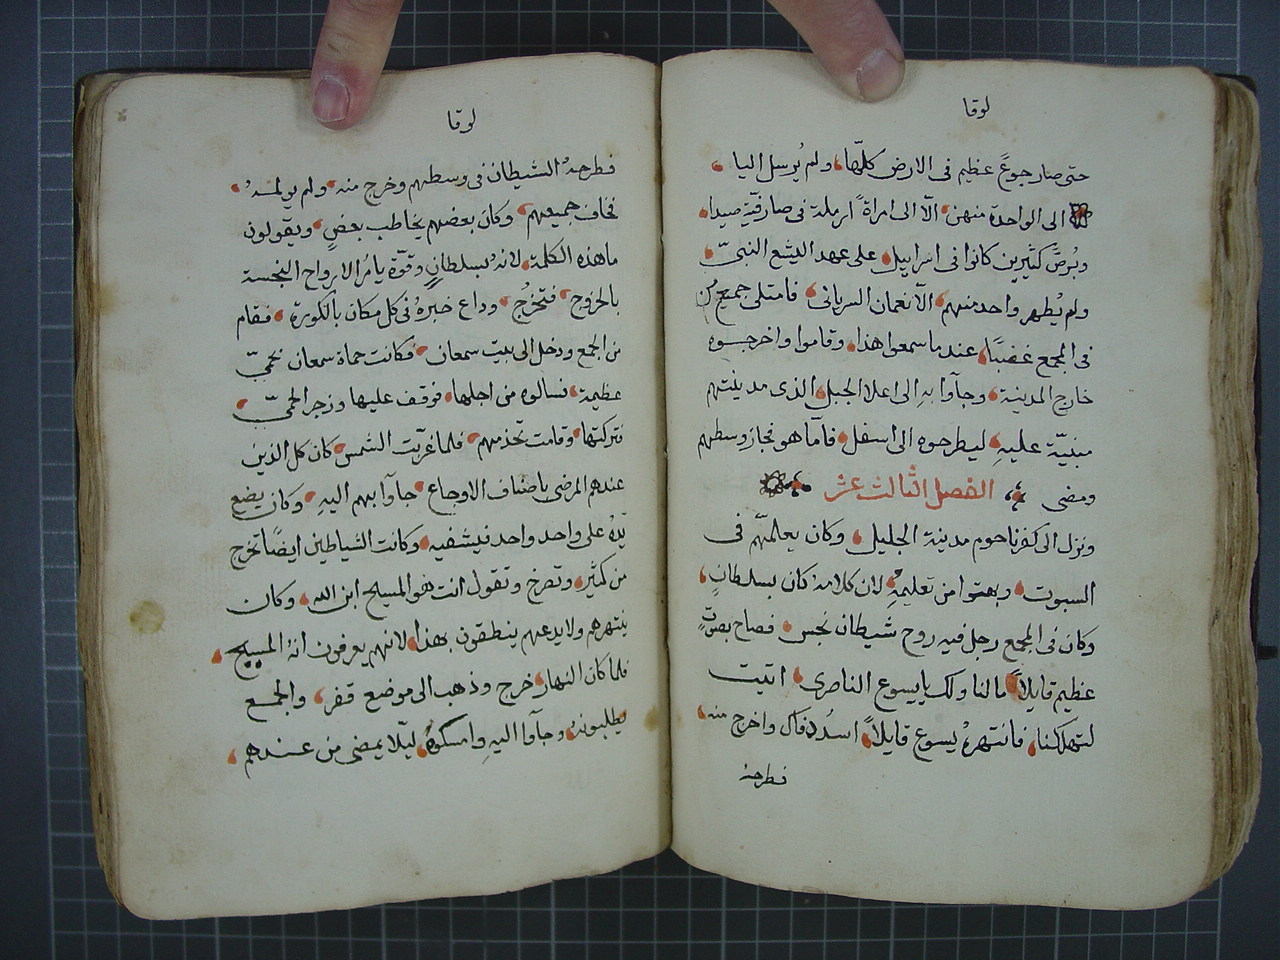 لوقا
حتى صار جوعًا عظيم فى الارض كلّها، ولم يُرسل اليا
الى الواحدة منهن، الّا الى امراة ارملة فى صارفيّة صيدا،
وبُرصٌ كثيرين كانوا فى اسراييل، على عهد اليشع النبىّ،
ولم يُطهر واحد منهم، الّا نعمان السريانى، فامتلى جميع من
فى المجمع غضبًا، عندما سمعوا هذا، وقاموا واخرجوه
خارج المدينة، وجآوا بهِ الى اعلا الجبل، الذى مدينتهم
مبنيّة عليهِ، ليطرحوه الى اسفل، فامّا هو فجاز وسطهم
ومضى الفصل الثالث عشر
ونزل الى كفرناحوم مدينة الجليل، وكان يعلّمهم فى
السبوت، وبهتوا من تعليمهِ، لان كلامهُ كان بسلطانٍ،
وكان فى المجمع رجل فيه روح شيطان نجس، فصاح بصوتٍ
عظيم قايلاً، ما لنا ولك يا يسوع الناصرى، اتيت
لتهلكنا، فانتهرهُ يسوع قايلاً، اسدُد فاك واخرج منه،
فطرحهُ
لوقا
فطرحهُ الشيطان فى وسطهم وخرج منه، ولم يولمهُ،
فخاف جميعهم، وكان بعضهم يخاطب بعضٍ، ويقولون
ما هذه الكلمة، لانهُ بسلطانٍ وقوّة يامُر الارواح النجسة
بالخروج، فتخرُج، وداع خبرهُ فى كل مكان بالكورة، فقام
من الجمع ودخل الى بيت سمعان، فكانت حماة سمعان بحمىّ
عظيمة، فسالوه من اجلها، فوقف عليها وزجر الحمىّ،
فتركتها، وقامت تخدمهم، فلما غربت الشمس، كان كل الذين
عندهم المرضى باصناف الاوجاع، جآوا بهم اليهِ، وكان يضع
يدهُ على واحد واحد فيشفيه، وكانت الشياطين ايضًا تخرج
من كثير، وتصرخ وتقول انت هو المسيح ابن الله، وكان
ينتهرهم ولا يدعهم ينطقون بهذا، لانهم يعرفون انهُ المسيح،
فلما كان النهار، خرج وذهب الى موضع قفر، والجمع
يطلبونهُ، وجآوا اليهِ وامسكوهُ، ليلّا يمضى من عندهم،